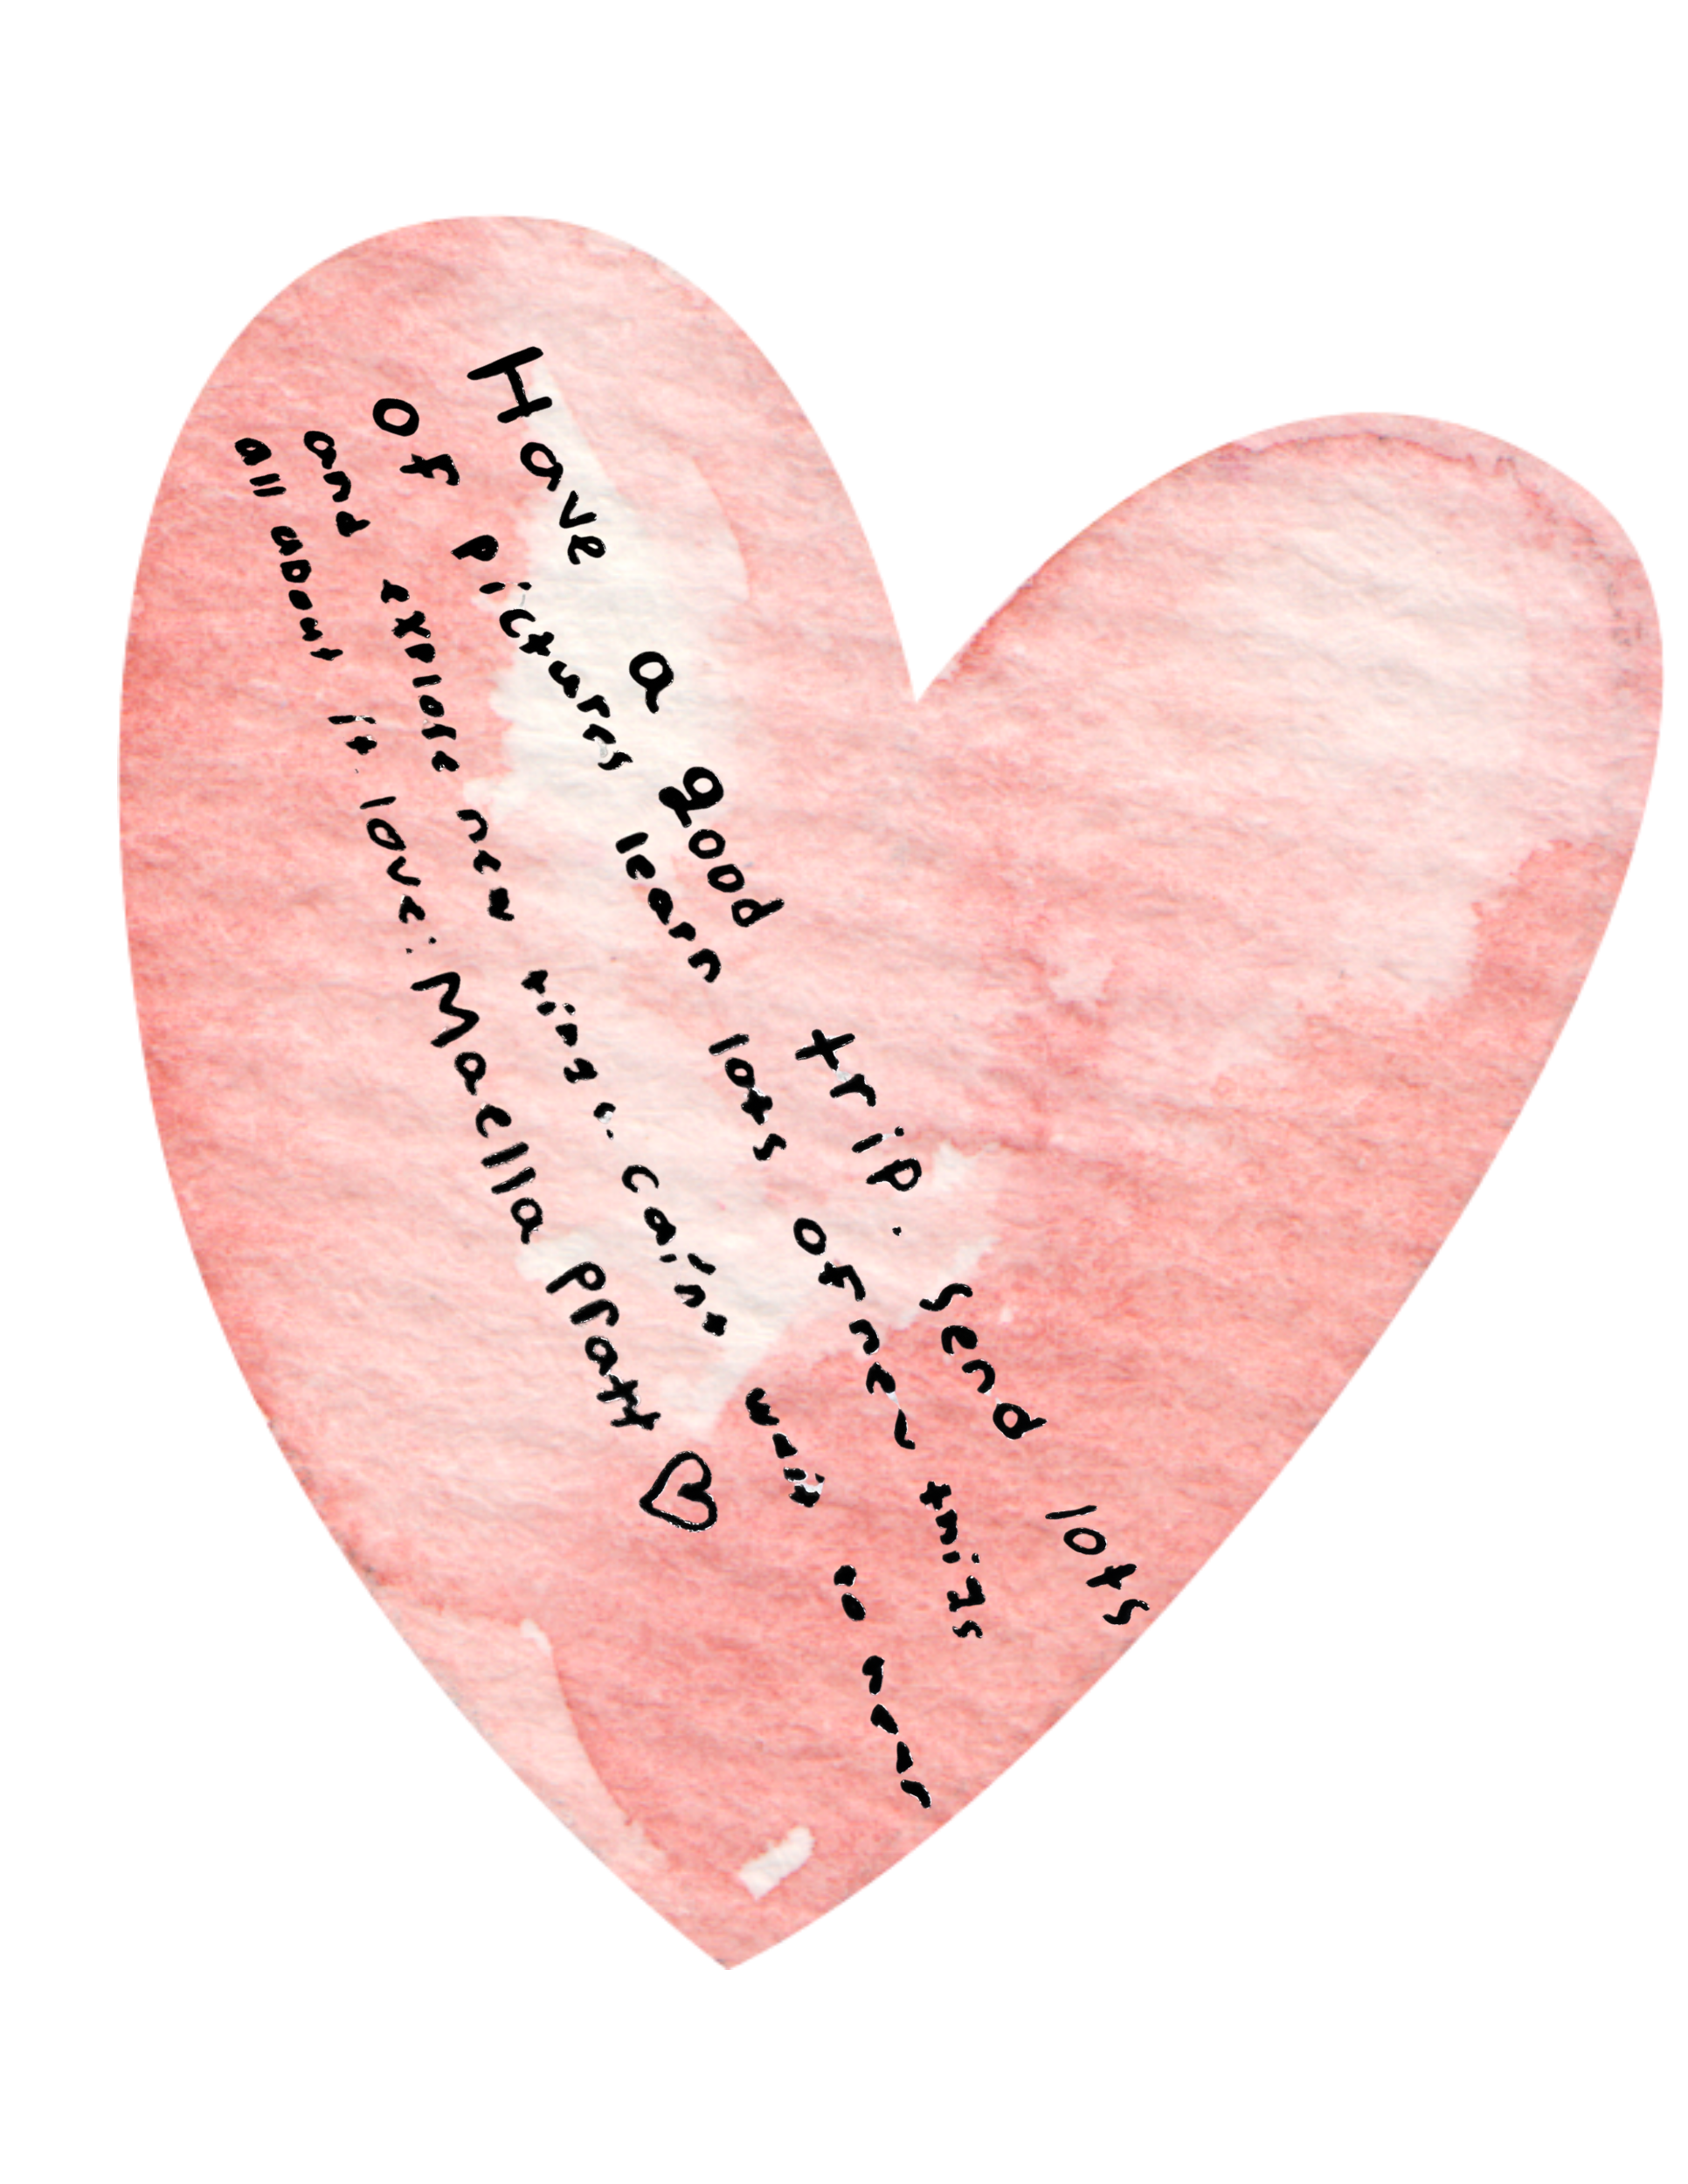 Have a good trip. send lots
of pictures learn lots of new things
and explore new cain't wait to hear
all about it. love: Maella Pratt